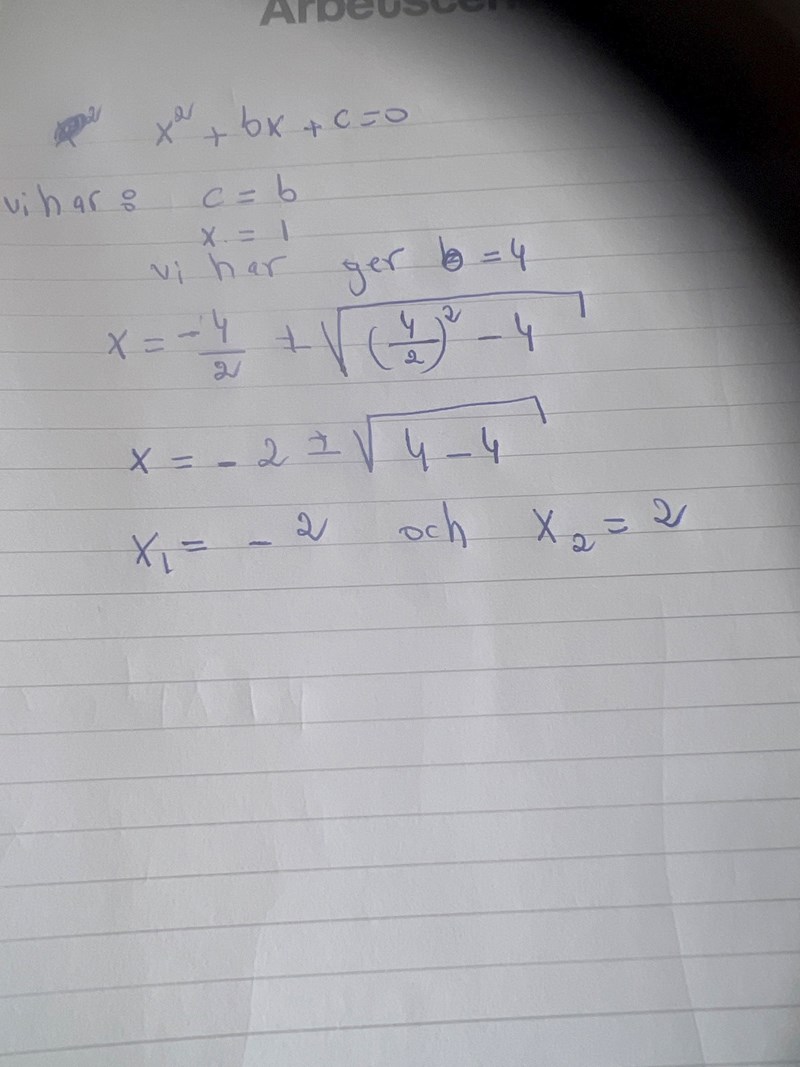 x² + bx + c = 0
vi har: c = b
x = 1
vi har ger b = 4
x = -4/2 ± √((4/2)² - 4)
x = - 2 ± √(4 - 4)
x₁ = - 2 och x₂ = 2